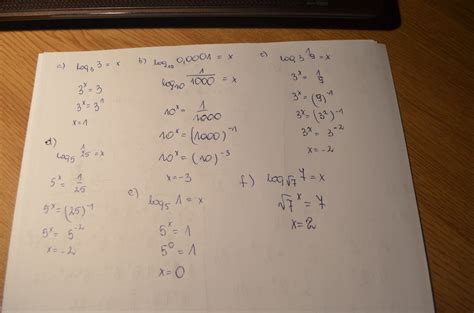 a) log₃ 3 = x
3ˣ = 3
3ˣ = 3¹
x = 1
b) log₁₀ 0,0001 = x
log₁₀ 1/1000 = x
10ˣ = 1/1000
10ˣ = (1000)⁻¹
10ˣ = (10)⁻³
x = -3
c) log₃ 1/9 = x
3ˣ = 1/9
3ˣ = (9)⁻¹
3ˣ = (3²)⁻¹
3ˣ = 3⁻²
x = -2
d) log₅ 1/25 = x
5ˣ = 1/25
5ˣ = (25)⁻¹
5ˣ = 5⁻²
x = -2
e) log₅ 1 = x
5ˣ = 1
5⁰ = 1
x = 0
f) log√7 7 = x
√7ˣ = 7
x = 2